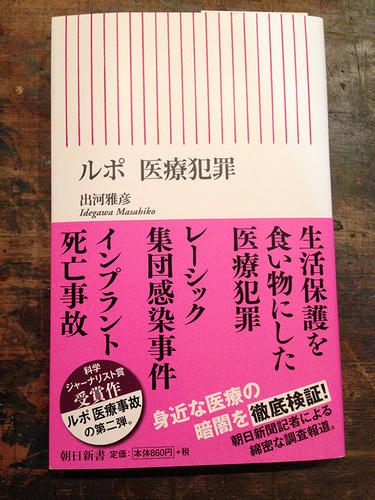 ルポ 医療犯罪
出河雅彦
Idegawa Masahiko
生活保護を
食い物にした
医療犯罪
レーシック
集団感染事件
インプラント
死亡事故
科学
ジャーナリスト賞
受賞作
ルポ 医療事故
の第二弾。
身近な医療の
暗闇を徹底検証!
朝日新聞記者による
綿密な調査報道。
朝日新書 定価:本体860円 +税